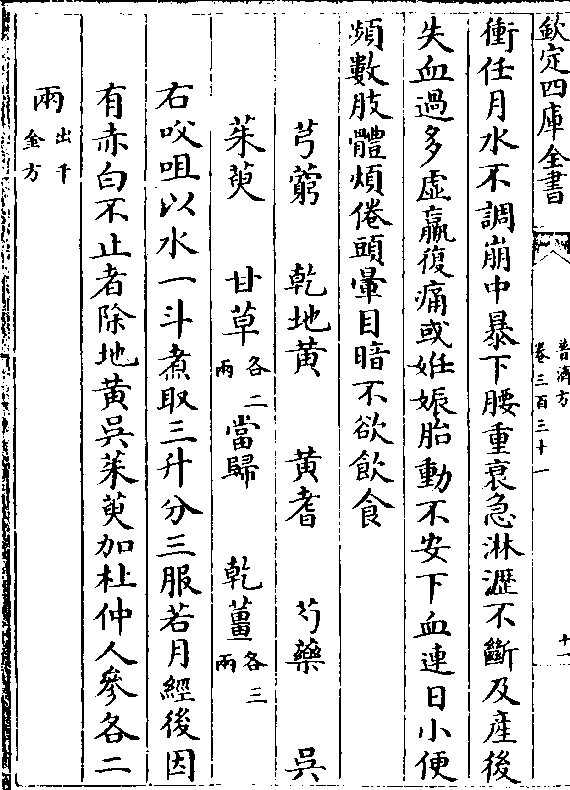 欽定四庫全書
普濟方
卷三百三十一
十一
衝任月水不調崩中暴下腰重裏急淋瀝不斷及產後
失血過多虛羸復痛或姙娠胎動不安下血連日小便
頻數肢體煩倦頭暈目暗不欲飲食
芎藭 乾地黄 黄耆 芍藥 吳
茱萸 甘草各二兩 當歸 乾薑各三兩
右㕮咀以水一斗煮取三升分三服若月經後因
有赤白不止者除地黄吳茱萸加杜仲人參各二
兩出千金方